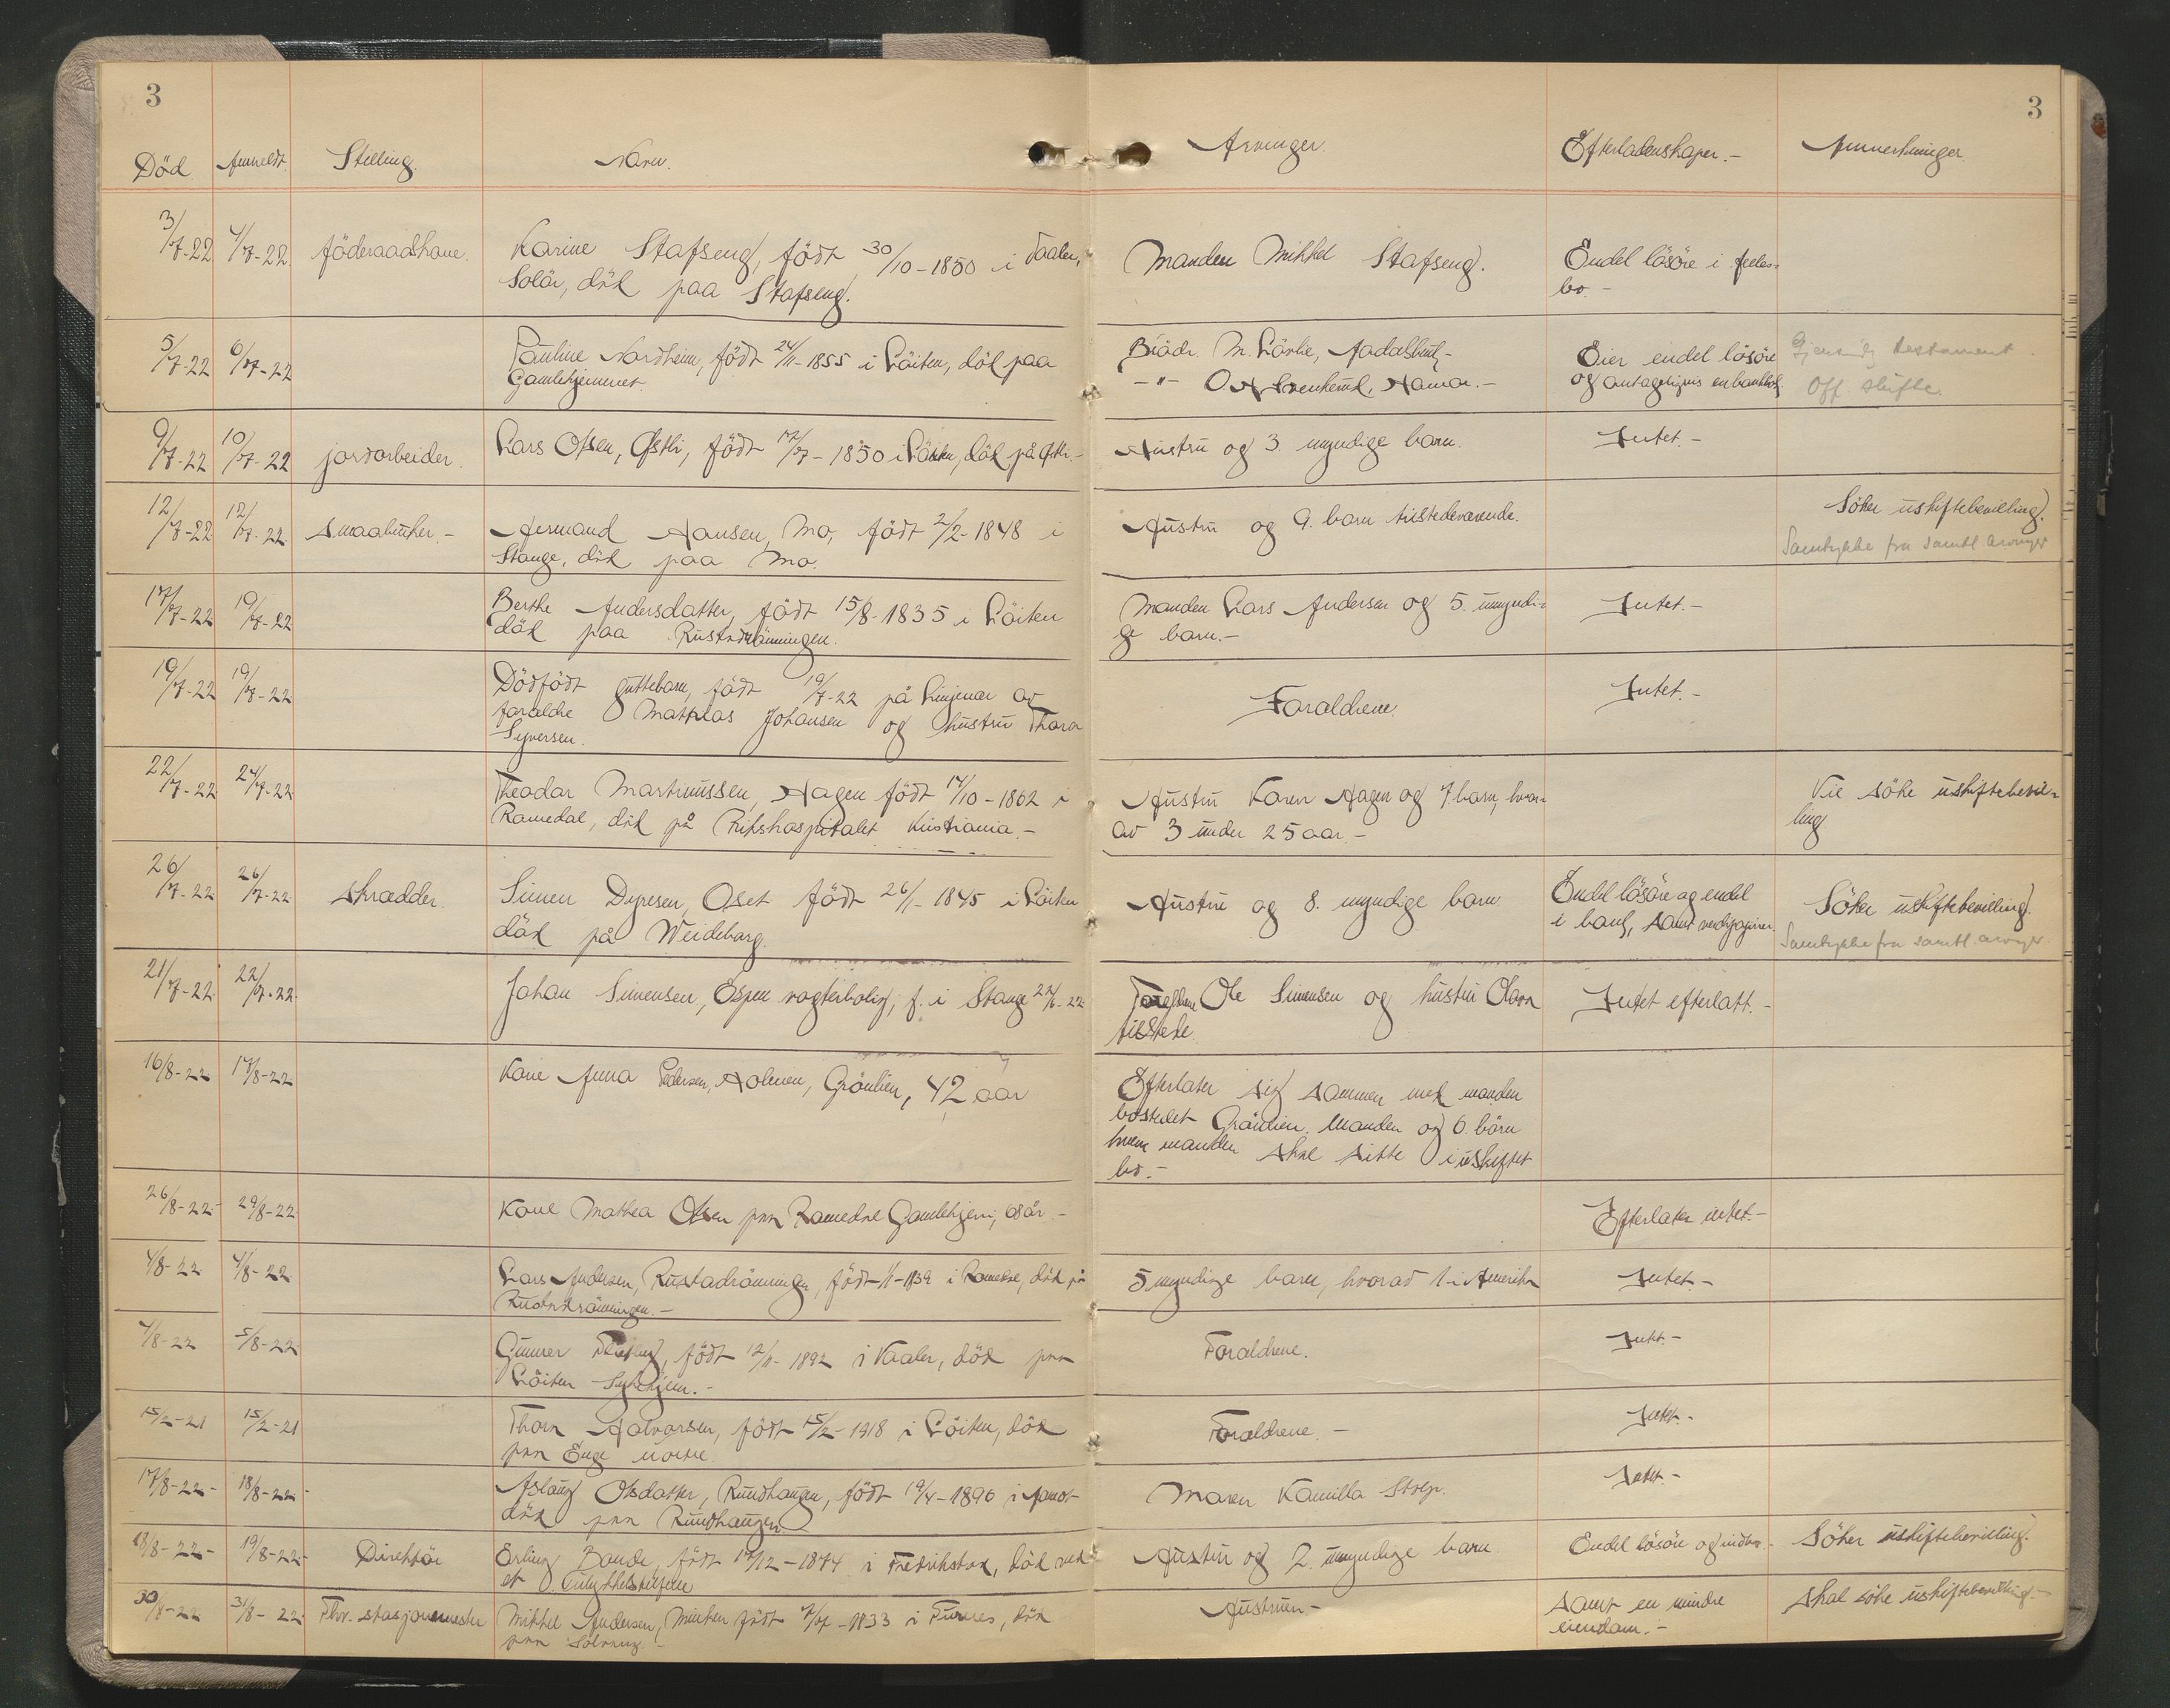 3
3
Död. Anmeldt. Stilling. Navn. Arvinger. Efterladenskaper.- Anmerkninger.
3/7-22 4/7-22 föderaadskone. Karine Stafseng, född 30/10-1850 i Vaaler, Manden Mikkel Stafseng. Endel lösöre i felles-
Solör, död paa Stafseng. bo.-
5/7-22 6/7-22 Pauline Nordheim, född 24/11-1855 i Löiten, död paa Brödr. M. Lörke, Eier endel lösöre Gjensidig testament
Gamlehjemmet. -"- O. Hamar.- og antageligvis en bankbok Off. skifte.
9/7-22 10/7-22 jordarbeider. Lars Olsen, Östli, född 17/7-1850 i Löiten, död på Östli.- Hustru og 3 myndige barn. Intet.-
12/7-22 12/7-22 Smaabruker.- Hermand Hansen, Mo, född 2/2-1848 i Hustru og 9. barn tilstedeværende. Söker uskiftebevilling.
Stange, död paa Mo. Samtykke fra samtl. arvinger
17/7-22 19/7-22 Berthe Andersdatter, född 15/8-1835 i Löiten Manden Lars Andersen og 5. myndi- Intet.-
död paa Rustadrönningen. ge barn.-
19/7-22 19/7-22 Dödfödt guttebarn, född 19/7-22 på Linjemar av Foraldrene. Intet.-
foraldre Mathias Johansen og hustru Thora
Syversen.
22/7-22 24/7-22 Theodor Martinussen, Hagen född 14/10-1862 i Hustru Karen Hagen og 7 barn, hvor- Vil söke uskiftebevil-
Romedal, död på Rikshospitalet Kristiania.- av 3 under 25 aar.- ling
26/7-22 26/7-22 skrædder. Simen Dyresen, Oset född 26/1-1845 i Löiten Hustru og 8. myndige barn Endel lösöre og endel Söker uskiftebevilling.
död på Weideborg. i bank, samt verdipapirer. Samtykke fra samtl. arvinger.
21/7-22 22/7-22 Johan Simensen, Espen vogterbolig, f. i Stange 22/6-22 Foreldrene Ole Simensen og hustru Olava Intet efterlatt.-
tilstede.
16/8-22 17/8-22 Kone Anna Pedersen, Holmen, Grönlien, 42 aar Efterlater sig sammen med manden
bostedet Grönlien. Manden og 6. börn
hvem manden skal sitte i uskiftet
bo.-
26/8-22 29/8-22 Kone Mathea Olsen paa Romedal Gamlehjem, 68 år.- Efterlater intet.-
4/8-22 4/8-22 Lars Andersen, Rustadrönningen, född 1/1-1839 i Romedal, död på 5 myndige barn, hvorav 1 i Amerika Intet.-
Rustadrönningen.-
4/8-22 5/8-22 Gunner född 12/11-1892 i Vaaler, död paa Foraldrene. Intet-
Löiten Sykehjem.-
15/2-21 15/2-21 Thora Halvorsen, född 15/2-1918 i Löiten, död Foraldrene.- Intet.-
paa Enge nordre.
17/8-22- 18/8-22- Aslaug Olsdatter, Rundhaugen, född 19/4-1890 i Aamot Maren Kamilla Stolp. Intet-
död paa Rundhaugen
18/8-22- 19/8-22- Direktör Erling Bande, född 17/12-1874 i Fredrikstad, död ved Hustru og 2. umyndige barn. Endel lösöre og indbo.- Söker uskiftebevilling.
et ulykkestilfelle
30/8-22 31/8-22 Fhv. stasjonsmester Mikkel Andersen, född 7/7-1833 i Furnes, död Hustruen- Samt en mindre Skal söke uskiftebevilling.-
paa Solvang.- eiendom.-